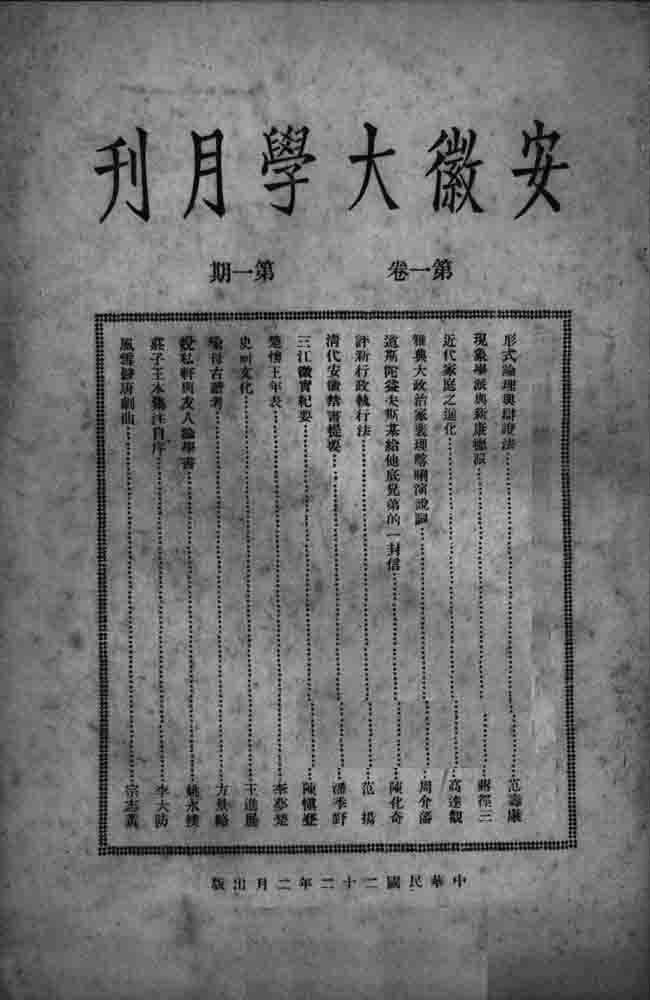 安徽大學月刊
第一卷 第一期
形式論理與辯證法……范壽康
現象學派與新康德派……蔣徑三
近代家庭之進化……高達觀
雅典大政治家裴理喀唎演說詞……周介藩
道斯陀益夫斯基給他底兄弟的一封信……陳化奇
評新行政執行法……范揚
清代安徽禁書提要……潘季野
三江徽實紀要……陳慎登
楚懷王年表……李夢楚
史前文化……王進展
母古譜考……方景略
蛻私軒與友人論學書……姚永樸
莊子王本集注自序……李大防
風雪發店劇曲……宗志黃
中華民國二十二年二月出版